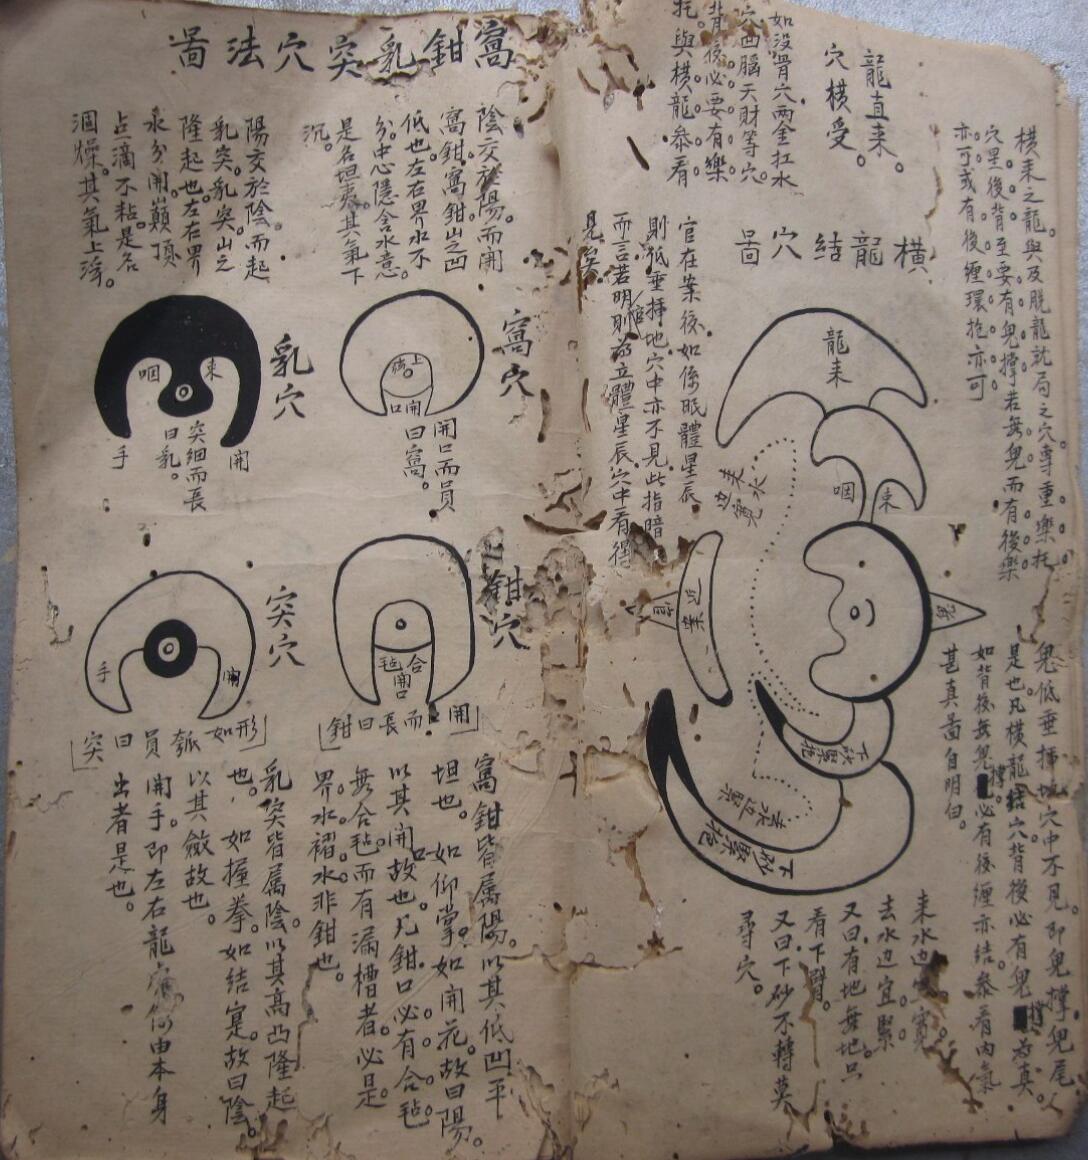 龍直来。
穴横受。
如没骨穴两金扛水
穴凹腦天財等穴。
背後必要有樂
托。與横龍叅看
横来之龍。與及脱龍就局之穴。専重樂托
穴星後背。至要有鬼撑。若無鬼而有後樂
亦可。或有後纏環抱亦可
横龍結穴啚
官在案後。如係眠體星辰
則低垂挿地。穴中亦不見。此指暗
而言若明則為立體星辰。穴中看得
見矣。
官
龍来
束
咽
来水
边寬
案
官
下砂緊抱
去水边緊
下砂緊抱
鬼低垂挿地。穴中不見。即鬼撑。鬼尾
是也。凡横龍結穴。背後必有鬼為真。
撑
如背後無鬼必有後纏亦結。叅看内氣
撑
甚真啚自明白。
来水边宜寬
去水边宜緊。
又曰。有地無地。只
看下臂。
又曰。下砂不轉莫
尋穴。
窩鉗乳突穴法啚
陰交於陽。而開
窩鉗。窩鉗山之凹
低也。左右界水不
分。中心隱含水意。
是名坦夷。其氣下
沉。
陽交於陰。而起
乳突。乳突。山之
隆起也。左右界
水分開。巔頂
点滴不粘。是名
涸燥。其氣上浮。
窩穴
上
開口
開口而員
曰窩。
乳穴
束
咽
開
手
突細而長
曰乳。
鉗穴
合
毡
開口
開口而長曰鉗
突穴
開
手
形如瓠員曰突
窩鉗皆属陽。以其低凹平
坦也。如仰掌。如開花。故曰陽。
以其開故也。凡鉗口必有合毡。
無合毡。而有漏槽者。必是
界水。褶水非鉗也。
乳突皆属陰。以其高凸隆起
也。如握拳。如結寔。故曰陰。
以其斂故也。
開手。即左右龍虎由本身
出者是也。